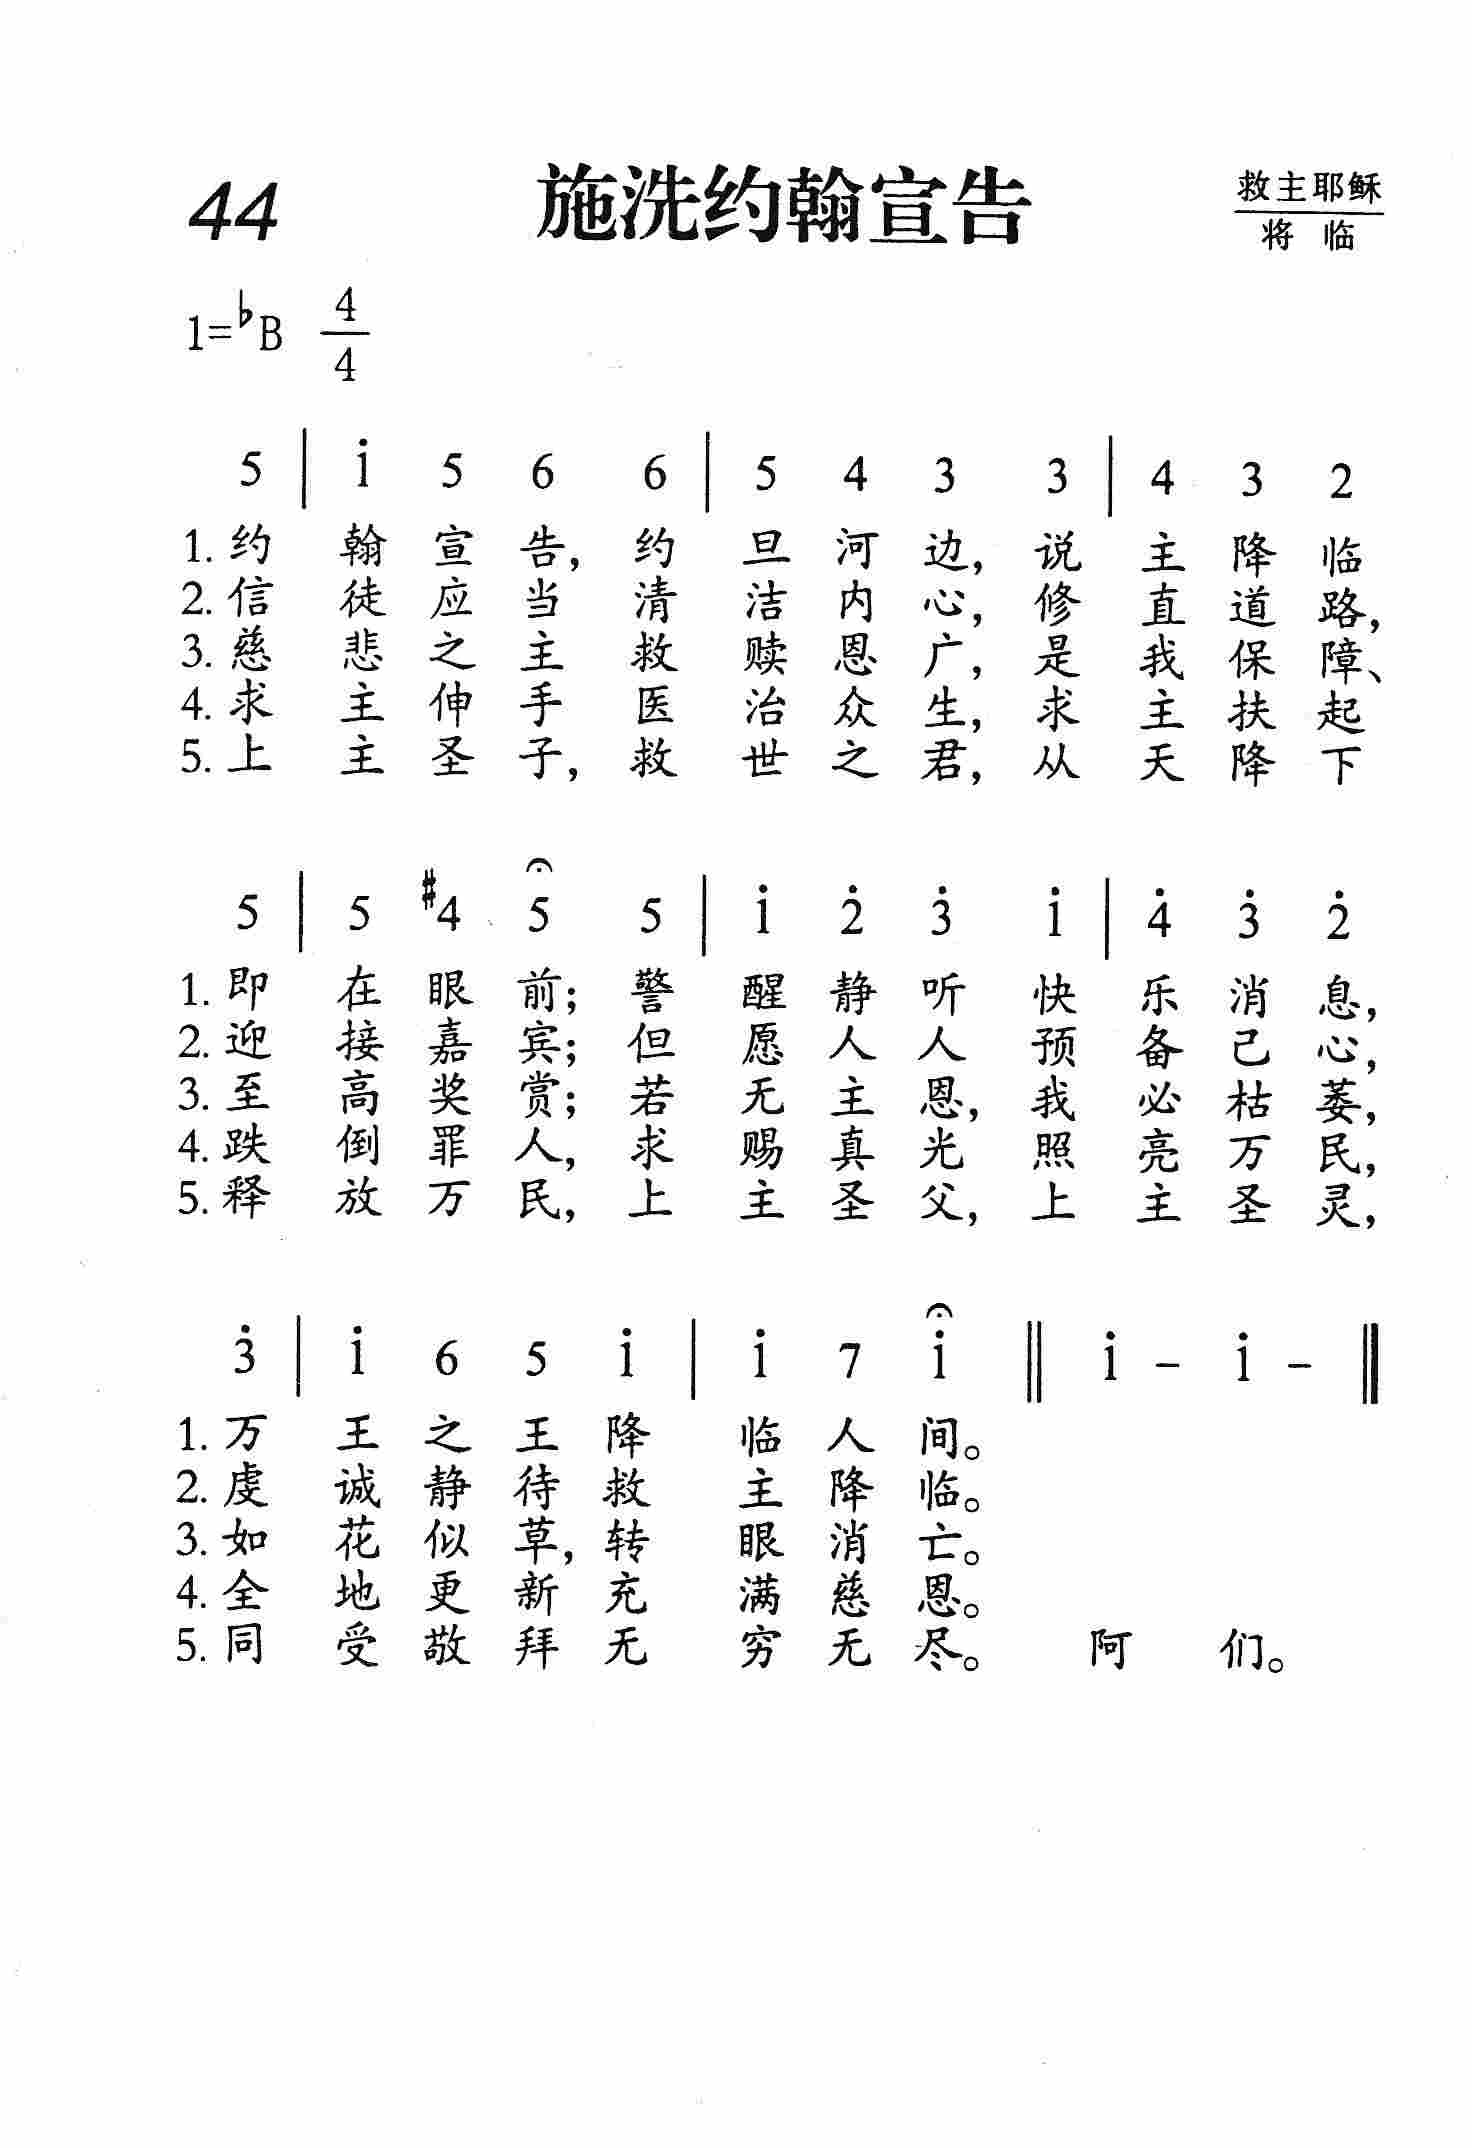 44 施洗约翰宣告 救主耶稣
将 临
1=♭B 4/4
5 | i 5 6 6 | 5 4 3 3 | 4 3 2
1. 约 翰 宣 告, 约 旦 河 边, 说 主 降 临
2. 信 徒 应 当 清 洁 内 心, 修 直 道 路,
3. 慈 悲 之 主 救 赎 恩 广, 是 我 保 障、
4. 求 主 伸 手 医 治 众 生, 求 主 扶 起
5. 上 主 圣 子, 救 世 之 君, 从 天 降 下
5 | 5 #4 5 5 | i 2̇ 3̇ i | 4̇ 3̇ 2̇
1. 即 在 眼 前; 警 醒 静 听 快 乐 消 息,
2. 迎 接 嘉 宾; 但 愿 人 人 预 备 己 心,
3. 至 高 奖 赏; 若 无 主 恩, 我 必 枯 萎,
4. 跌 倒 罪 人, 求 赐 真 光 照 亮 万 民,
5. 释 放 万 民, 上 主 圣 父, 上 主 圣 灵,
3̇ | i 6 5 i | i 7 i ‖ i - i - ‖
1. 万 王 之 王 降 临 人 间。
2. 虔 诚 静 待 救 主 降 临。
3. 如 花 似 草, 转 眼 消 亡。
4. 全 地 更 新 充 满 慈 恩。
5. 同 受 敬 拜 无 穷 无 尽。 阿 们。